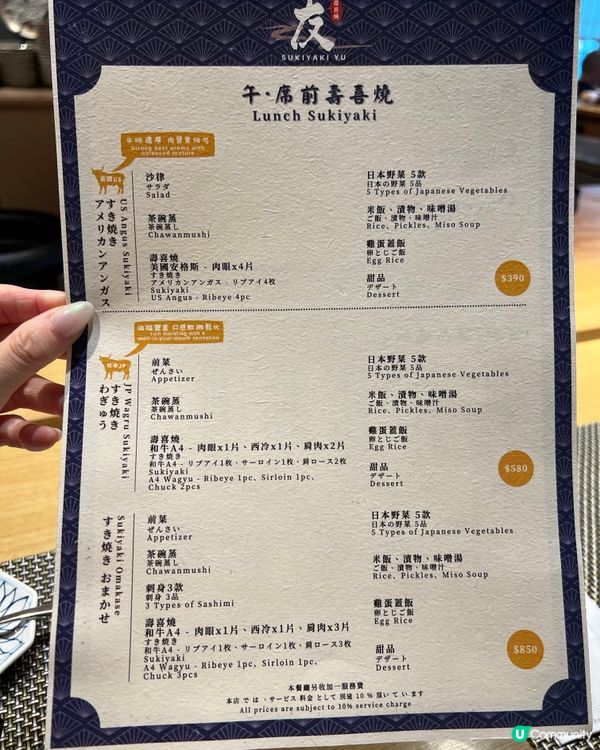 友
壽喜燒
SUKIYAKI YU
午·席前壽喜燒
Lunch Sukiyaki
牛味濃厚 肉質更均勻
Strong beef aroma with
balanced texture
美國US
US Angus Sukiyaki
すき焼き
アメリカンアンガス
沙律
サラダ
Salad
茶碗蒸
茶碗蒸し
Chawanmushi
壽喜燒
美國安格斯 - 肉眼x4片
すき焼き
アメリカンアンガス - リブアイ4枚
Sukiyaki
US Angus - Ribeye 4pc
日本野菜 5款
日本の野菜 5品
5 Types of Japanese Vegetables
米飯、漬物、味噌湯
ご飯、漬物、味噌汁
Rice, Pickles, Miso Soup
雞蛋蓋飯
卵とじご飯
Egg Rice
甜品
デザート
Dessert
$390
油脂豐富 口感軟綿融化
rich marbling with a
melt-in-your-mouth sensation
日本JP
JP Wagyu Sukiyaki
すき焼き
わぎゅう
前菜
ぜんさい
Appetizer
茶碗蒸
茶碗蒸し
Chawanmushi
壽喜燒
和牛A4 - 肉眼x1片、西冷x1片、肩肉x2片
すき焼き
和牛A4 - リブアイ1枚、サーロイン1枚、肩ロース2枚
Sukiyaki
A4 Wagyu - Ribeye 1pc, Sirloin 1pc,
Chuck 2pcs
日本野菜 5款
日本の野菜 5品
5 Types of Japanese Vegetables
米飯、漬物、味噌湯
ご飯、漬物、味噌汁
Rice, Pickles, Miso Soup
雞蛋蓋飯
卵とじご飯
Egg Rice
甜品
デザート
Dessert
$580
Sukiyaki Omakase
すき焼き おまかせ
前菜
ぜんさい
Appetizer
茶碗蒸
茶碗蒸し
Chawanmushi
刺身3款
刺身 3品
3 Types of Sashimi
壽喜燒
和牛A4 - 肉眼x1片、西冷x1片、肩肉x3片
すき焼き
和牛A4 - リブアイ1枚、サーロイン1枚、肩ロース3枚
Sukiyaki
A4 Wagyu - Ribeye 1pc, Sirloin 1pc,
Chuck 3pcs
日本野菜 5款
日本の野菜 5品
5 Types of Japanese Vegetables
米飯、漬物、味噌湯
ご飯、漬物、味噌汁
Rice, Pickles, Miso Soup
雞蛋蓋飯
卵とじご飯
Egg Rice
甜品
デザート
Dessert
$850
本餐廳另收加一服務費
本店では、サービス料金として別途10%頂いています
All prices are subject to 10% service charge
U Community